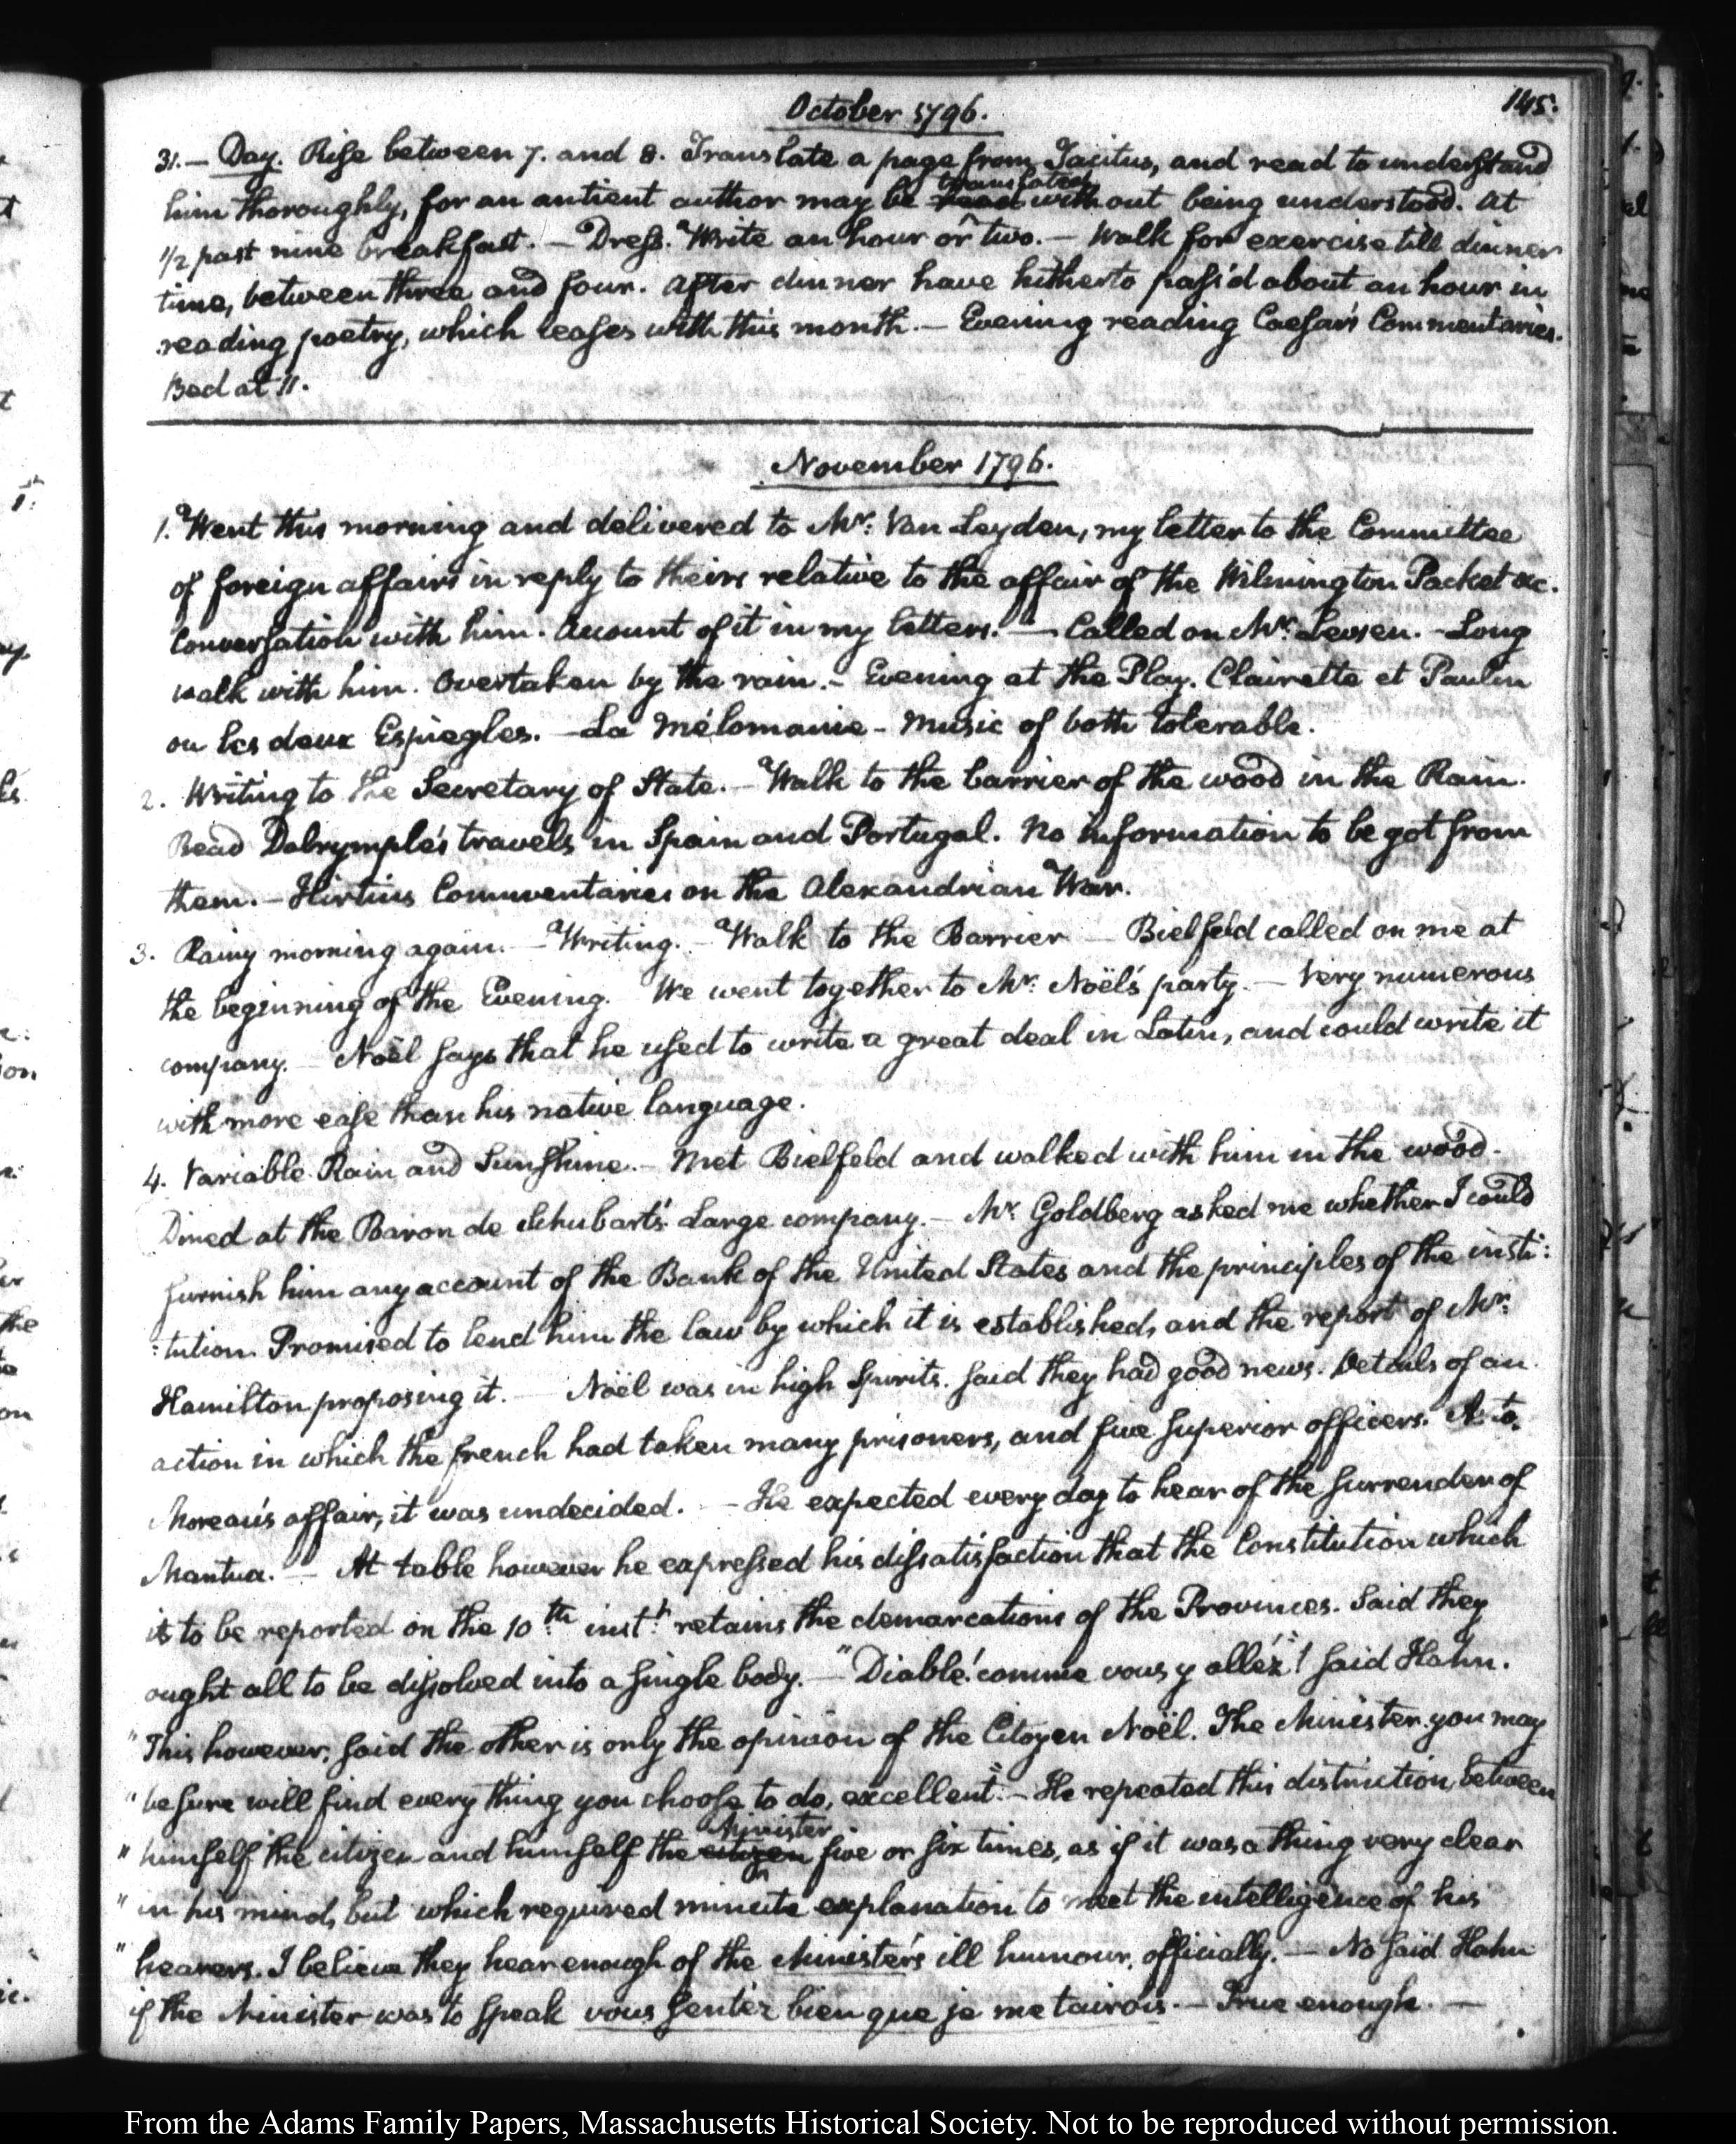 145.
October 1796.
31.— Day. Rise between 7. and 8. Translate a page from Tacitus, and read to understand
him thoroughly, for an antient author may be read translated without being understood. At
1/2 past nine breakfast. — Dress. Write an hour or two. — Walk for exercise till dinner
time, between three and four. After dinner have hitherto pass'd about an hour in
reading poetry, which ceases with this month. — Evening reading Caesar's Commentaries.
Bed at 11.
November 1796.
1. Went this morning and delivered to Mr: Van Leyden, my letter to the Committee
of foreign affairs in reply to theirs relative to the affair of the Wilmington Packet &c.
Conversation with him. Account of it in my letters. — Called on Mr: Levsen. - Long
walk with him. Overtaken by the rain. - Evening at the Play. Clairette et Paulin
ou les deux Espiegles. — La Mélomanie - Music of both tolerable.
2. Writing to the Secretary of State. — Walk to the barrier of the wood in the Rain.
Read Dalrymple's travels in Spain and Portugal. No information to be got from
them. — Hirtius Commentaries on the Alexandrian War.
3. Rainy morning again. — Writing. — Walk to the Barrier — Bielfeld called on me at
the beginning of the Evening. We went together to Mr: Noël's party. — Very numerous
company. — Noël says that he used to write a great deal in Latin, and could write it
with more ease than his native language.
4. Variable Rain and Sunshine. — Met Bielfeld and walked with him in the wood.
Dined at the Baron de Schubart's. Large company. — Mr: Goldberg asked me whether I could
furnish him any account of the Bank of the United States and the principles of the insti:
:tution. Promised to lend him the law by which it is established, and the report of Mr:
Hamilton proposing it. — Noël was in high Spirits. said they had good news. Details of an
action in which the french had taken many prisoners, and five superior officers. As to
Moreau's affair, it was undecided. — He expected every day to hear of the surrender of
Mantua. — At table however he expressed his dissatisfaction that the Constitution which
is to be reported on the 10th: inst:t retains the demarcations of the Provinces. Said they
ought all to be dissolved into a single body. — "Diable! comme vous y alléz"! said Hahn.
"This however, said the other is only the opinion of the Citoyen Noël. The Minister you may
"be sure will find every thing you choose to do, excellent". — He repeated this distinction, between
"himself the citizen and himself the citizen Minister five or six times, as if it was a thing very clear
"in his mind, but which required minute explanation to meet the intelligence of his
"hearers. I believe they hear enough of the Minister's ill humour, officially. — No said Hahn
if the Minister was to speak vous sentéz bien que je me tairois. — True enough. —
From the Adams Family Papers, Massachusetts Historical Society. Not to be reproduced without permission.